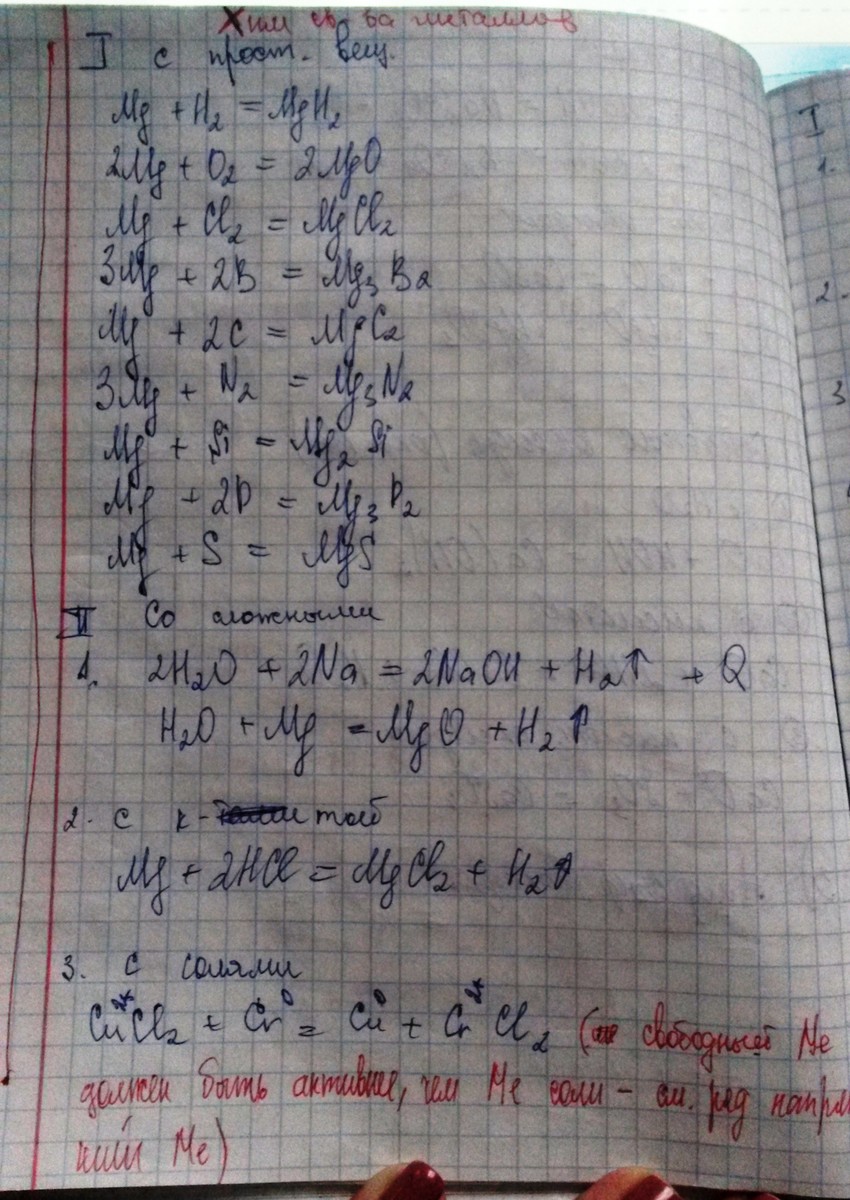 Хим св-ва металлов
I с прост. вещ.
Mg + H₂ = MgH₂
2Mg + O₂ = 2MgO
Mg + Cl₂ = MgCl₂
3Mg + 2B = Mg₃B₂
Mg + 2C = MgC₂
3Mg + N₂ = Mg₃N₂
Mg + Si = Mg₂Si
Mg + 2P = Mg₃P₂
Mg + S = MgS
II Со сложными
1. 2H₂O + 2Na = 2NaOH + H₂↑ + Q
H₂O + Mg = MgO + H₂↑
2. с к-той
Mg + 2HCl = MgCl₂ + H₂↑
3. с солями
Cu²⁺Cl₂ + Cr⁰ = Cu⁰ + Cr²⁺Cl₂ (свободный Ме
должен быть активнее, чем Ме соли - см. ряд напря
ний Ме)
I
1.
2.
3